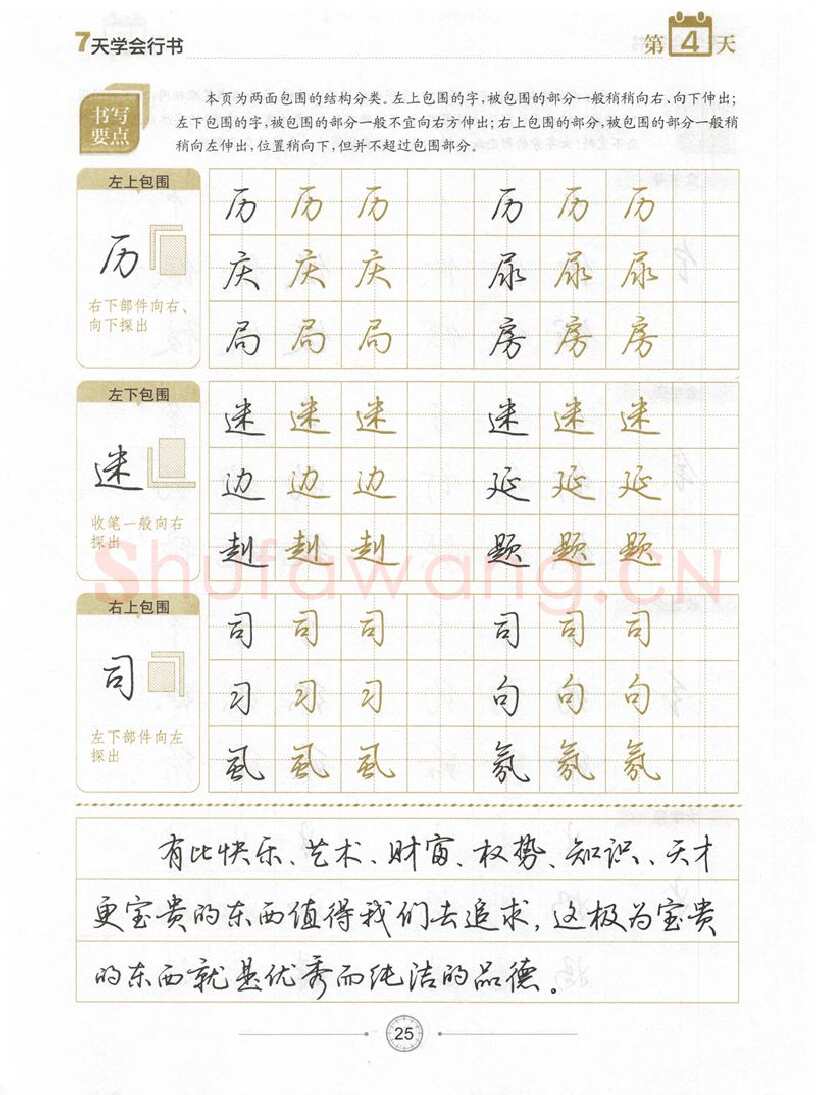 7天学会行书
第4天
书写
要点
本页为两面包围的结构分类。左上包围的字,被包围的部分一般稍稍向右、向下伸出;
左下包围的字,被包围的部分一般不宜向右方伸出;右上包围的部分,被包围的部分一般稍
稍向左伸出,位置稍向下,但并不超过包围部分。
左上包围
历
右下部件向右、
向下探出
历 历 历 历 历 历
庆 庆 庆 尿 尿 尿
局 局 局 房 房 房
左下包围
迷
收笔一般向右
探出
迷 迷 迷 迷 迷 迷
边 边 边 延 延 延
赳 赳 赳 题 题 题
Shufawang.CN
右上包围
司
左下部件向左
探出
司 司 司 司 司 司
习 习 习 句 句 句
虱 虱 虱 氛 氛 氛
有比快乐、艺术、财富、权势、知识、天才
更宝贵的东西值得我们去追求,这极为宝贵
的东西就是优秀而纯洁的品德。
25